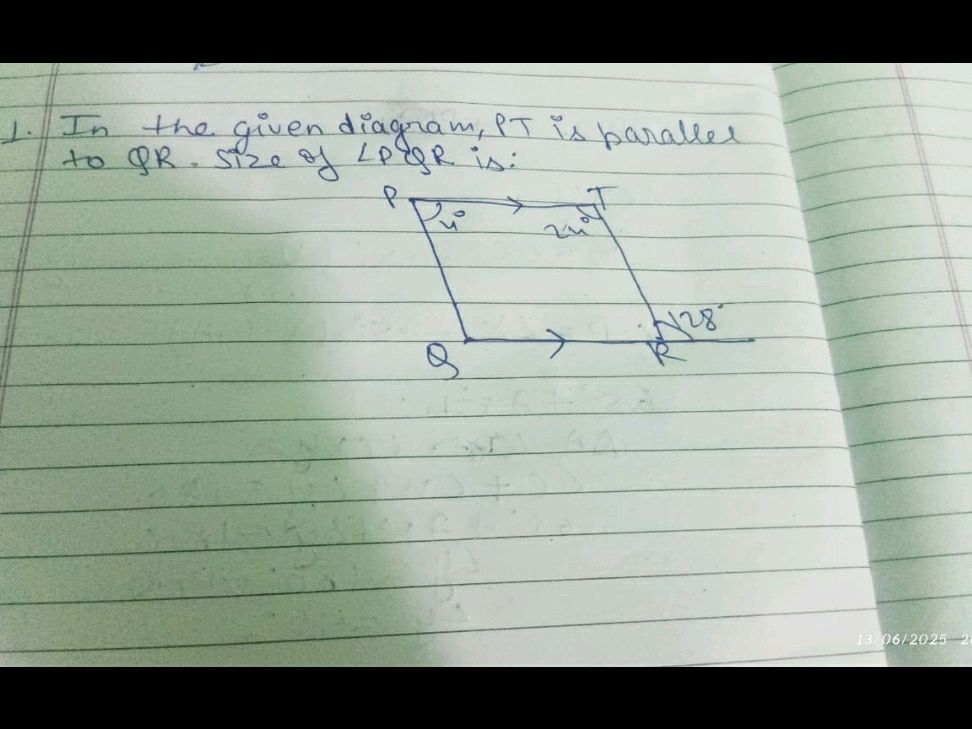 1. In the given diagram, PT is parallel
to QR. Size of ∠PQR is:
P T
y° 2y°
128°
Q R
13/06/2025